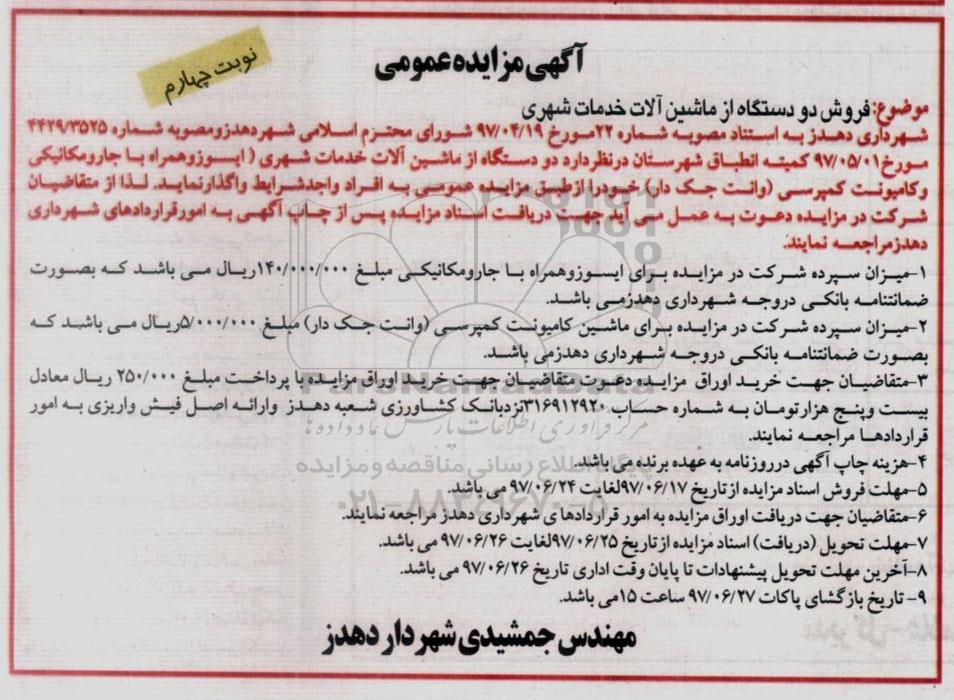 آگهی مزایده عمومی
نوبت چهارم
موضوع: فروش دو دستگاه از ماشین آلات خدمات شهری
شهرداری دهدز به استناد مصوبه شماره ۲۲مورخ ۹۷/۰۴/۱۹ شورای محترم اسلامی شهردهدزومصوبه شماره ۴۴۲۹/۳۵۲۵
مورخ۹۷/۰۵/۰۱ کمیته انطباق شهرستان درنظردارد دو دستگاه از ماشین آلات خدمات شهری ( ایسوزوهمراه با جارومکانیکی
وکامیونت کمپرسی (وانت جک دار) خودرا ازطبق مزایده عمومی به افراد واجدشرایط واگذارنماید. لذا از متقاضیان
شرکت در مزایده دعوت به عمل می آید جهت دریافت اسناد مزایده پس از چاپ آگهی به امورقراردادهای شهرداری
دهدزمراجعه نمایند.
۱-میزان سپرده شرکت در مزایده برای ایسوزوهمراه با جارومکانیکی مبلغ ۱۴۰/۰۰۰/۰۰۰ریال می باشد که بصورت
ضمانتنامه بانکی دروجه شهرداری دهدزمی باشد.
۲-میزان سپرده شرکت در مزایده برای ماشین کامیونت کمپرسی (وانت جک دار) مبلغ ۵/۰۰۰/۰۰۰ریال می باشد که
بصورت ضمانتنامه بانکی دروجه شهرداری دهدزمی باشد.
۳-متقاضیان جهت خرید اوراق مزایده دعوت متقاضیان جهت خرید اوراق مزایده با پرداخت مبلغ ۲۵۰/۰۰۰ ریال معادل
بیست وپنج هزارتومان به شماره حساب ۳۱۶۹۱۲۹۲۰نزدبانک کشاورزی شعبه دهدز وارائه اصل فیش واریزی به امور
قراردادها مراجعه نمایند.
۴-هزینه چاپ آگهی درروزنامه به عهده برنده می باشد.
۵-مهلت فروش اسناد مزایده ازتاریخ ۹۷/۰۶/۱۷لغایت ۹۷/۰۶/۲۴ می باشد.
۶-متقاضیان جهت دریافت اوراق مزایده به امور قراردادها ی شهرداری دهدز مراجعه نمایند.
۷-مهلت تحویل (دریافت) اسناد مزایده ازتاریخ ۹۷/۰۶/۲۵لغایت ۹۷/۰۶/۲۶ می باشد.
۸-آخرین مهلت تحویل پیشنهادات تا پایان وقت اداری تاریخ ۹۷/۰۶/۲۶ می باشد.
۹- تاریخ بازگشای پاکات ۹۷/۰۶/۲۷ ساعت ۱۵می باشد.
مهندس جمشیدی شهردار دهدز
ParsNamadData
مرکز فرآوری اطلاعات پارس نماد داده ها
پایگاه اطلاع رسانی مناقصه و مزایده